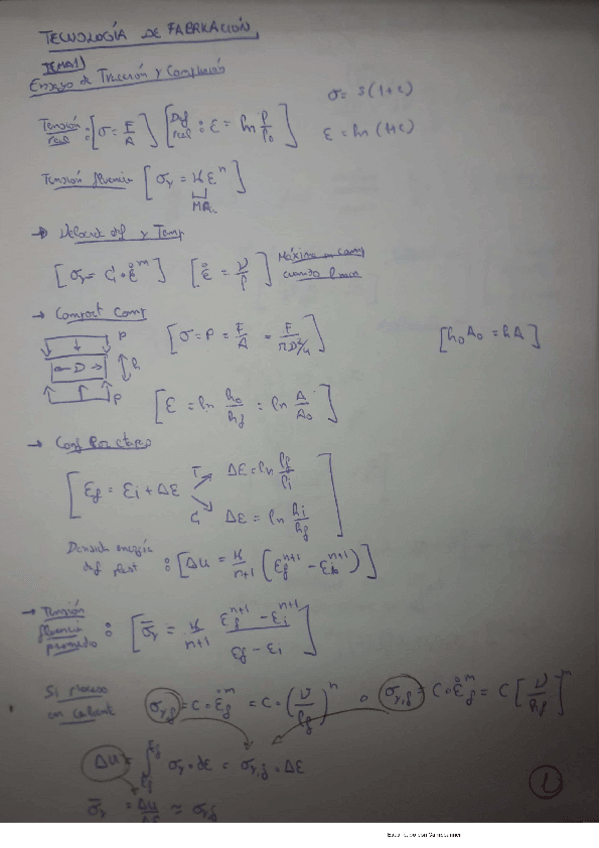 TECNOLOGÍA DE FABRICACIÓN
TEMA 1
Ensayo de Tracción y Compresión
σ = s(1+e)
Tensión real : [σ = F/A] [Def real : ε = ln l/l₀]
ε = ln(1+e)
Tensión fluencia [σᵧ = K εⁿ]
MPa
→ Velocid def y Temp
[σᵧ = C · ε̇ᵐ] [ε̇ = v/l] Máxima en comp
cuando l min
→ Comport Comp
P
D
h
P
[σ = P = F/A = F/(πD²/4)] [h₀A₀ = hA]
[ε = ln h₀/h_f = ln A/A₀]
→ Conf Por etapas
[ε_f = ε_i + Δε
T Δε = ln l_f/l_i
C Δε = ln h_i/h_f]
Densidad energía
def plast : [Δu = K/(n+1) (ε_f^(n+1) − ε_i^(n+1))]
→ Tensión
fluencia
promedio : [σ̄ᵧ = K/(n+1) (ε_f^(n+1) − ε_i^(n+1))/(ε_f − ε_i)]
Si proceso
en caliente
σ_y,f = C · ε̇_f^m = C · (v/l_f)^n o σ_y,f = C · ε̇_f^m = C [v/h_f]^m
Δu = ∫ σᵧ · dε = σ_y,f · Δε
σ̄ᵧ = Δu/Δε ≈ σ_y,f
1